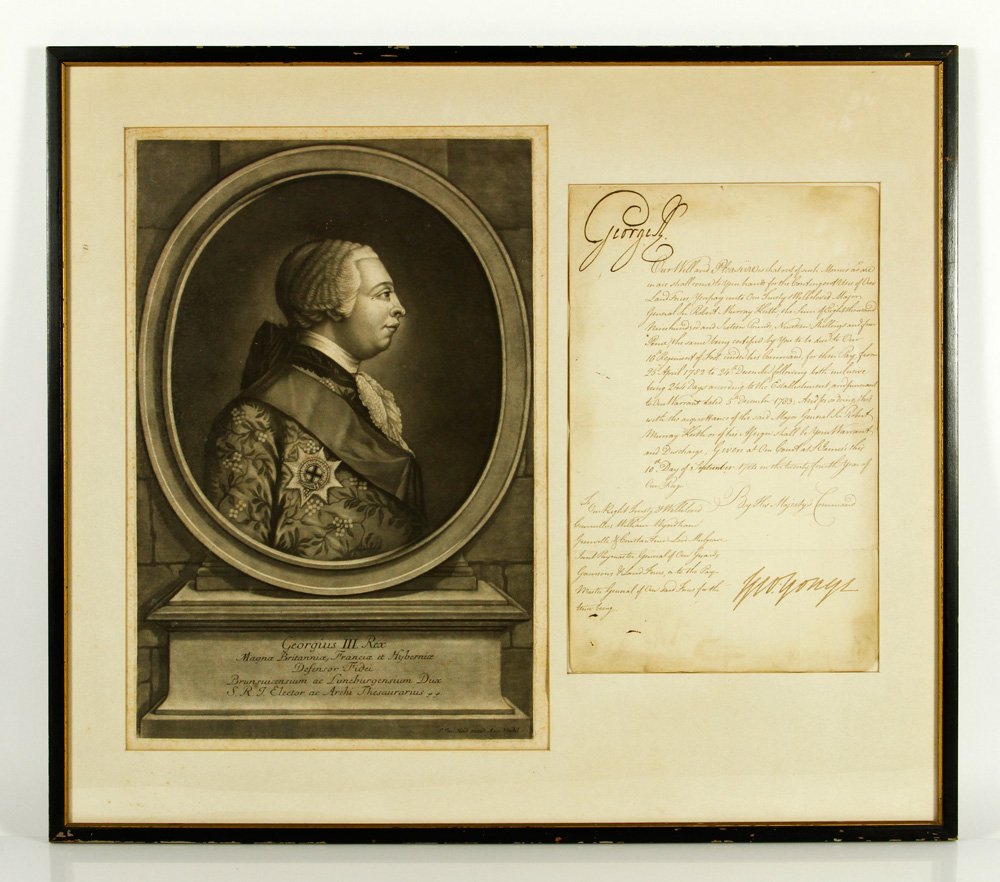 Georgius III. Rex
Magnæ Britanniæ, Franciæ et Hyberniæ
Defensor Fidei
Brunsvicensium ac Lüneburgensium Dux
S. R. I. Elector ac Archi Thesaurarius
George R.
Our Will and Pleasure is that out of such Monies as are
in or shall come to Your hands for the Contingent Uses of Our
Land Forces You pay unto Our Trusty & Wellbeloved Major
General Sr. Robert Murray Keith the Sum of Eight thousand
Nine hundred and Sixteen Pounds, Nineteen Shillings and four
Pence, the same being certified by You to be due to Our
Regiment of Foot under his Command, for their Pay from
25th. April 1782 to 24th. December following both inclusive
being 244 days according to the Establishment, and pursuant
to Our Warrant dated 5th. December 1783. And for so doing this
with the acquittance of the said Major General Sr. Robert
Murray Keith or of his Assigns shall be Your Warrant
and Discharge. Given at Our Court at St. James's this
10th. Day of September 1784 in the twenty fourth Year of
Our Reign.
By His Majesty's Command
To Our Right Trusty & Wellbeloved
Councillors William Wyndham
Grenville & Constantine Lord Mulgrave
Joint Paymaster General of Our Guards
Garrisons & Land Forces, or to the Pay
Master General of Our said Forces for the
time being.
Geo. Yonge